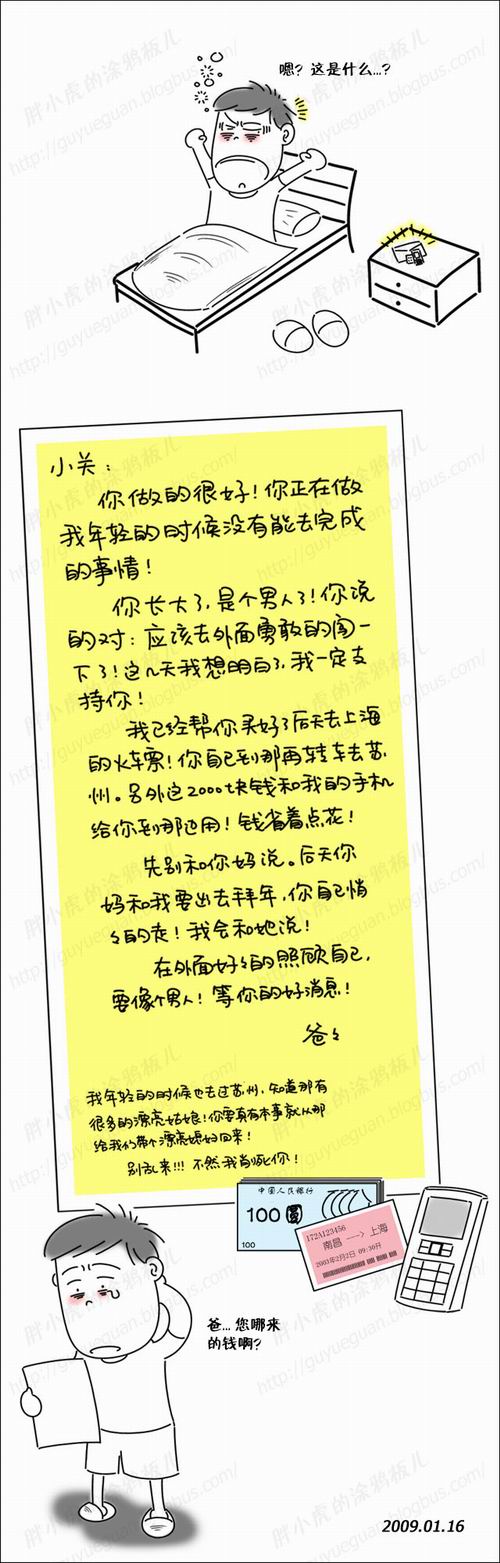 胖小虎的涂鸦板儿
http://guyueguan.blogbus.com/
嗯? 这是什么...?
小关:
你做的很好!你正在做
我年轻的时候没有能去完成
的事情!
你长大了,是个男人了!你说
的对:应该去外面勇敢的闯一
下了!这几天我想明白了,我一定支
持你!
我已经帮你买好了后天去上海
的火车票!你自己到那再转车去苏
州。另外这2000块钱和我的手机
给你到那边用!钱省着点花!
先别和你妈说。后天你
妈和我要出去拜年,你自己悄
々的走!我会和她说!
在外面好々的照顾自己,
要像个男人!等你的好消息!
爸々
我年轻的时候也去过苏州,知道那有
很多的漂亮姑娘!你要真有本事就从那
给我们带个漂亮媳妇回来!
别乱来!!!不然我肯拍死你!
中国人民银行
100圆
100
172A123456
南昌 ---> 上海
2001年2月2日 09:30开
爸... 您哪来
的钱啊?
2009.01.16